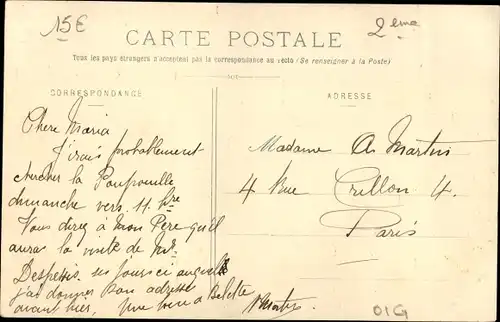 15E
2ème
CARTE POSTALE
Tous les pays étrangers n'acceptent pas la correspondance au recto (Se renseigner à la Poste)
CORRESPONDANCE
ADRESSE
Chère Maria
J'irais probablement
chercher la
dimanche vers 11 hre
Vous direz à mon Père qu'il
aura la visite de Mr
ces jours ci auquel
j'ai donner son adresse
avant hier, Une bise a Belotte
A Martin
Madame A. Martin
4 Rue Crillon 4.
Paris
01G